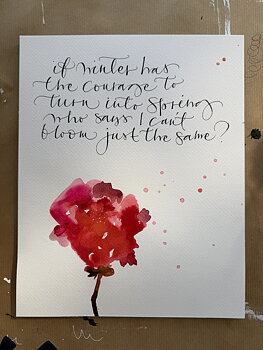 if winter has
the courage to
turn into spring
who says I can't
bloom just the same?